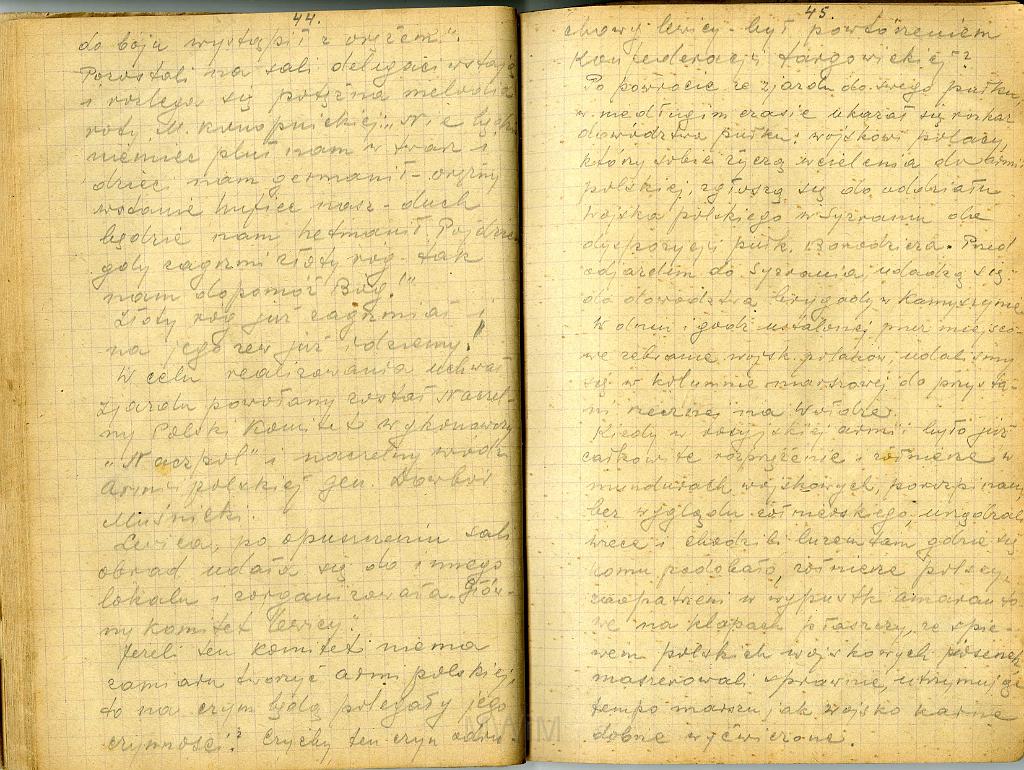 44.
do boju wystąpił z orężem".
Pozostali na sali delegaci wstają
i rozlega się potężna melodia
roty M. Konopnickiej: "Nie będzie
niemiec pluł nam w twarz i
dzieci nam germanił - orężny
wstanie hufiec nasz - duch
będzie nam hetmanił. Pójdziem
gdy zagrzmi złoty róg - tak
nam dopomóż Bóg!"
Złoty róg już zagrzmiał i
na jego zew już idziemy!
W celu realizowania uchwał
zjazdu powołany został Naczel-
ny Polski Komitet wykonawczy
"Naczpol" i naczelny wódz
Armii polskiej gen. Dowbór
Muśnicki.
Lewica, po opuszczeniu sali
obrad udała się do innego
lokalu i zorganizowała "Głów-
ny komitet lewicy".
Jeżeli ten komitet niema
zamiaru tworzyć armi polskiej,
to na czym będą polegały jego
czynności? Czyżby ten czyn
45.
lewicy - był powtórzeniem
Konfederacji targowickiej?
Po powrocie ze zjazdu do swego pułku,
w niedługim czasie ukazał się rozkaz
dowództwa pułku: wojskowi polacy,
który sobie życzą wcielenia do armi
polskiej, zgłoszą się do oddziału
Wojska polskiego w Syzraniu do
dyspozycji pułk. Borodzicza. Przed
odjazdem do Syzrania udadzą się
do dowództwa brygady w Kamyszynie
W dniu i godz. ustalonej przez miejsco-
we zebranie wojsk. polaków, udaliśmy
się w kolumnie marszowej do przysta-
ni rzecznej na Wołdze.
Kiedy w rosyjskiej armii było już
całkowite rozprzężenie i żołnierze w
mundurach wojskowych, porozpinani,
bez wyglądu żołnierskiego,
i chodzili luzem tam gdzie się
komu podobało, żołnierze polscy,
zaopatrzeni w wypustki amaranto-
we na klapach płaszczy, ze śpie-
wem polskich wojskowych piosenek
maszerowali sprawnie, utrzymując
tempo marszu jak wojsko karne
dobrze wyćwiczone.